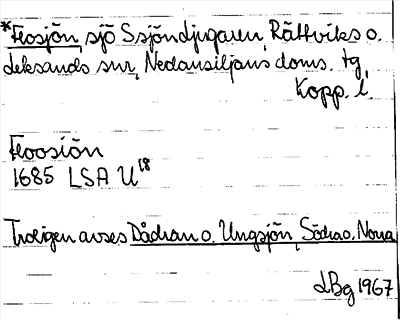 *Flosjön, sjö S sjön Djugaren, Rättviks o.
Leksands snr, Nedansiljans doms. tg,
Kopp. l.
Floosiön
1685 LSA U18
Troligen avses Dådran o. Ungsjön, Södra o. Norra
LBg 1967